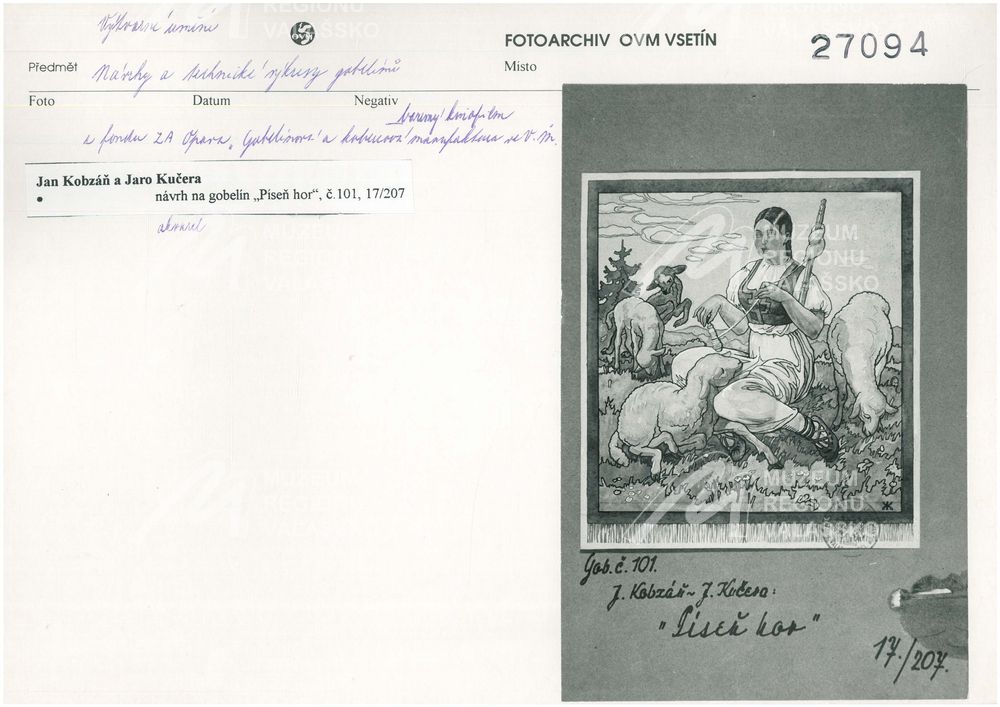 Výtvarné umění
OVM
FOTOARCHIV OVM VSETÍN
27094
Předmět Návrhy a technické výkresy gobelínů
Místo
Foto Datum Negativ barevný kinofilm
z fondu ZA Opava, Gobelínová a kobercová manufaktura ve V. M.
Jan Kobzáň a Jaro Kučera
• návrh na gobelín „Píseň hor“, č.101, 17/207
akvarel
Gob. č. 101.
J. Kobzáň - J. Kučera:
"Píseň hor"
17./207.
MUZEUM
REGIONU
VALAŠSKO